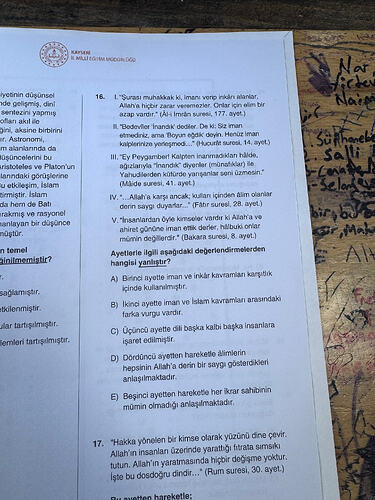 KAYSERİ
İL MİLLÎ EĞİTİM MÜDÜRLÜĞÜ
iyetinin düşünsel
nde gelişmiş, dinî
sentezini yapmış
ofları akıl ile
ğini, aksine birbirini
r. Astronomi,
m alanlarında da
düşüncelerini bu
ristoteles ve Platon'un
larındaki görüşlerine
u etkileşim, İslam
tirmiştir. İslam
da hem de Batı
rakmış ve rasyonel
nanlayan bir düşünce
müştür.
en temel
ğinilmemiştir?
r.
sağlamıştır.
etkilenmiştir.
ular tartışılmıştır.
lemleri tartışılmıştır.
16. I. "Şurası muhakkak ki, imanı verip inkârı alanlar,
Allah'a hiçbir zarar veremezler. Onlar için elim bir
azap vardır." (Âl-i İmrân suresi, 177. ayet.)
II. "Bedevîler 'İnandık' dediler. De ki: Siz iman
etmediniz, ama 'Boyun eğdik' deyin. Henüz iman
kalplerinize yerleşmedi…" (Hucurât suresi, 14. ayet.)
III. "Ey Peygamber! Kalpten inanmadıkları hâlde,
ağızlarıyla 'İnandık' diyenler (münafıklar) ile
Yahudilerden küfürde yarışanlar seni üzmesin."
(Mâide suresi, 41. ayet.)
IV. "…Allah'a karşı ancak; kulları içinden âlim olanlar
derin saygı duyarlar…" (Fâtır suresi, 28. ayet.)
V. "İnsanlardan öyle kimseler vardır ki Allah'a ve
ahiret gününe iman ettik derler, hâlbuki onlar
mümin değillerdir." (Bakara suresi, 8. ayet.)
Ayetlerle ilgili aşağıdaki değerlendirmelerden
hangisi yanlıştır?
A) Birinci ayette iman ve inkâr kavramları karşıtlık
içinde kullanılmıştır.
B) İkinci ayette iman ve İslam kavramları arasındaki
farka vurgu vardır.
C) Üçüncü ayette dili başka kalbi başka insanlara
işaret edilmiştir.
D) Dördüncü ayetten hareketle âlimlerin
hepsinin Allah'a derin bir saygı gösterdikleri
anlaşılmaktadır.
E) Beşinci ayetten hareketle her ikrar sahibinin
mümin olmadığı anlaşılmaktadır.
17. "Hakka yönelen bir kimse olarak yüzünü dine çevir.
Allah'ın insanları üzerinde yarattığı fıtrata sımsıkı
tutun. Allah'ın yaratmasında hiçbir değişme yoktur.
İşte bu dosdoğru dindir…" (Rum suresi, 30. ayet.)
Bu ayetten hareketle;